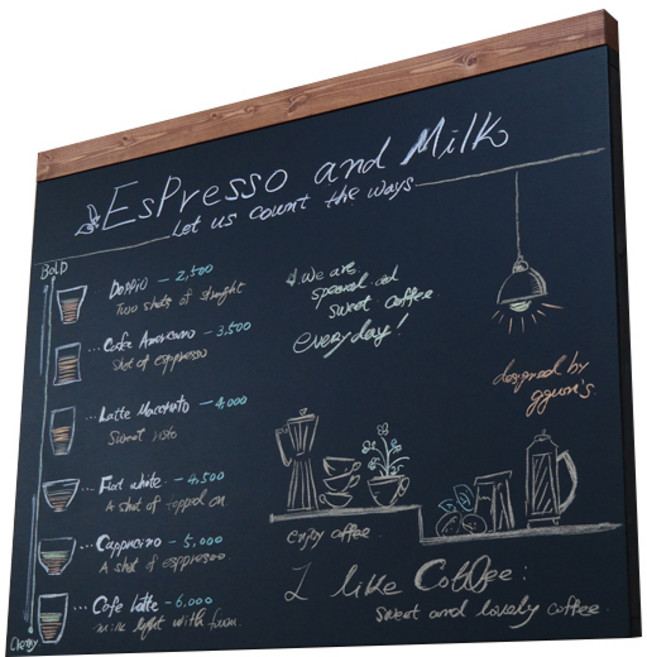 Espresso and Milk
Let us count the ways
BOLD
Doppio - 2,500
Two shots of straight
... Cafe Americano - 3,500
Shot of espresso
... Latte Macchiato - 4,000
Sweet
... Flat white - 4,500
A shot of topped on
... Cappucino - 5,000
A shot of espresso
... Cafe latte - 6,000
milk light with foam
we are
sweet coffee
everyday!
designed by
enjoy coffee
I like Coffee:
sweet and lovely coffee.